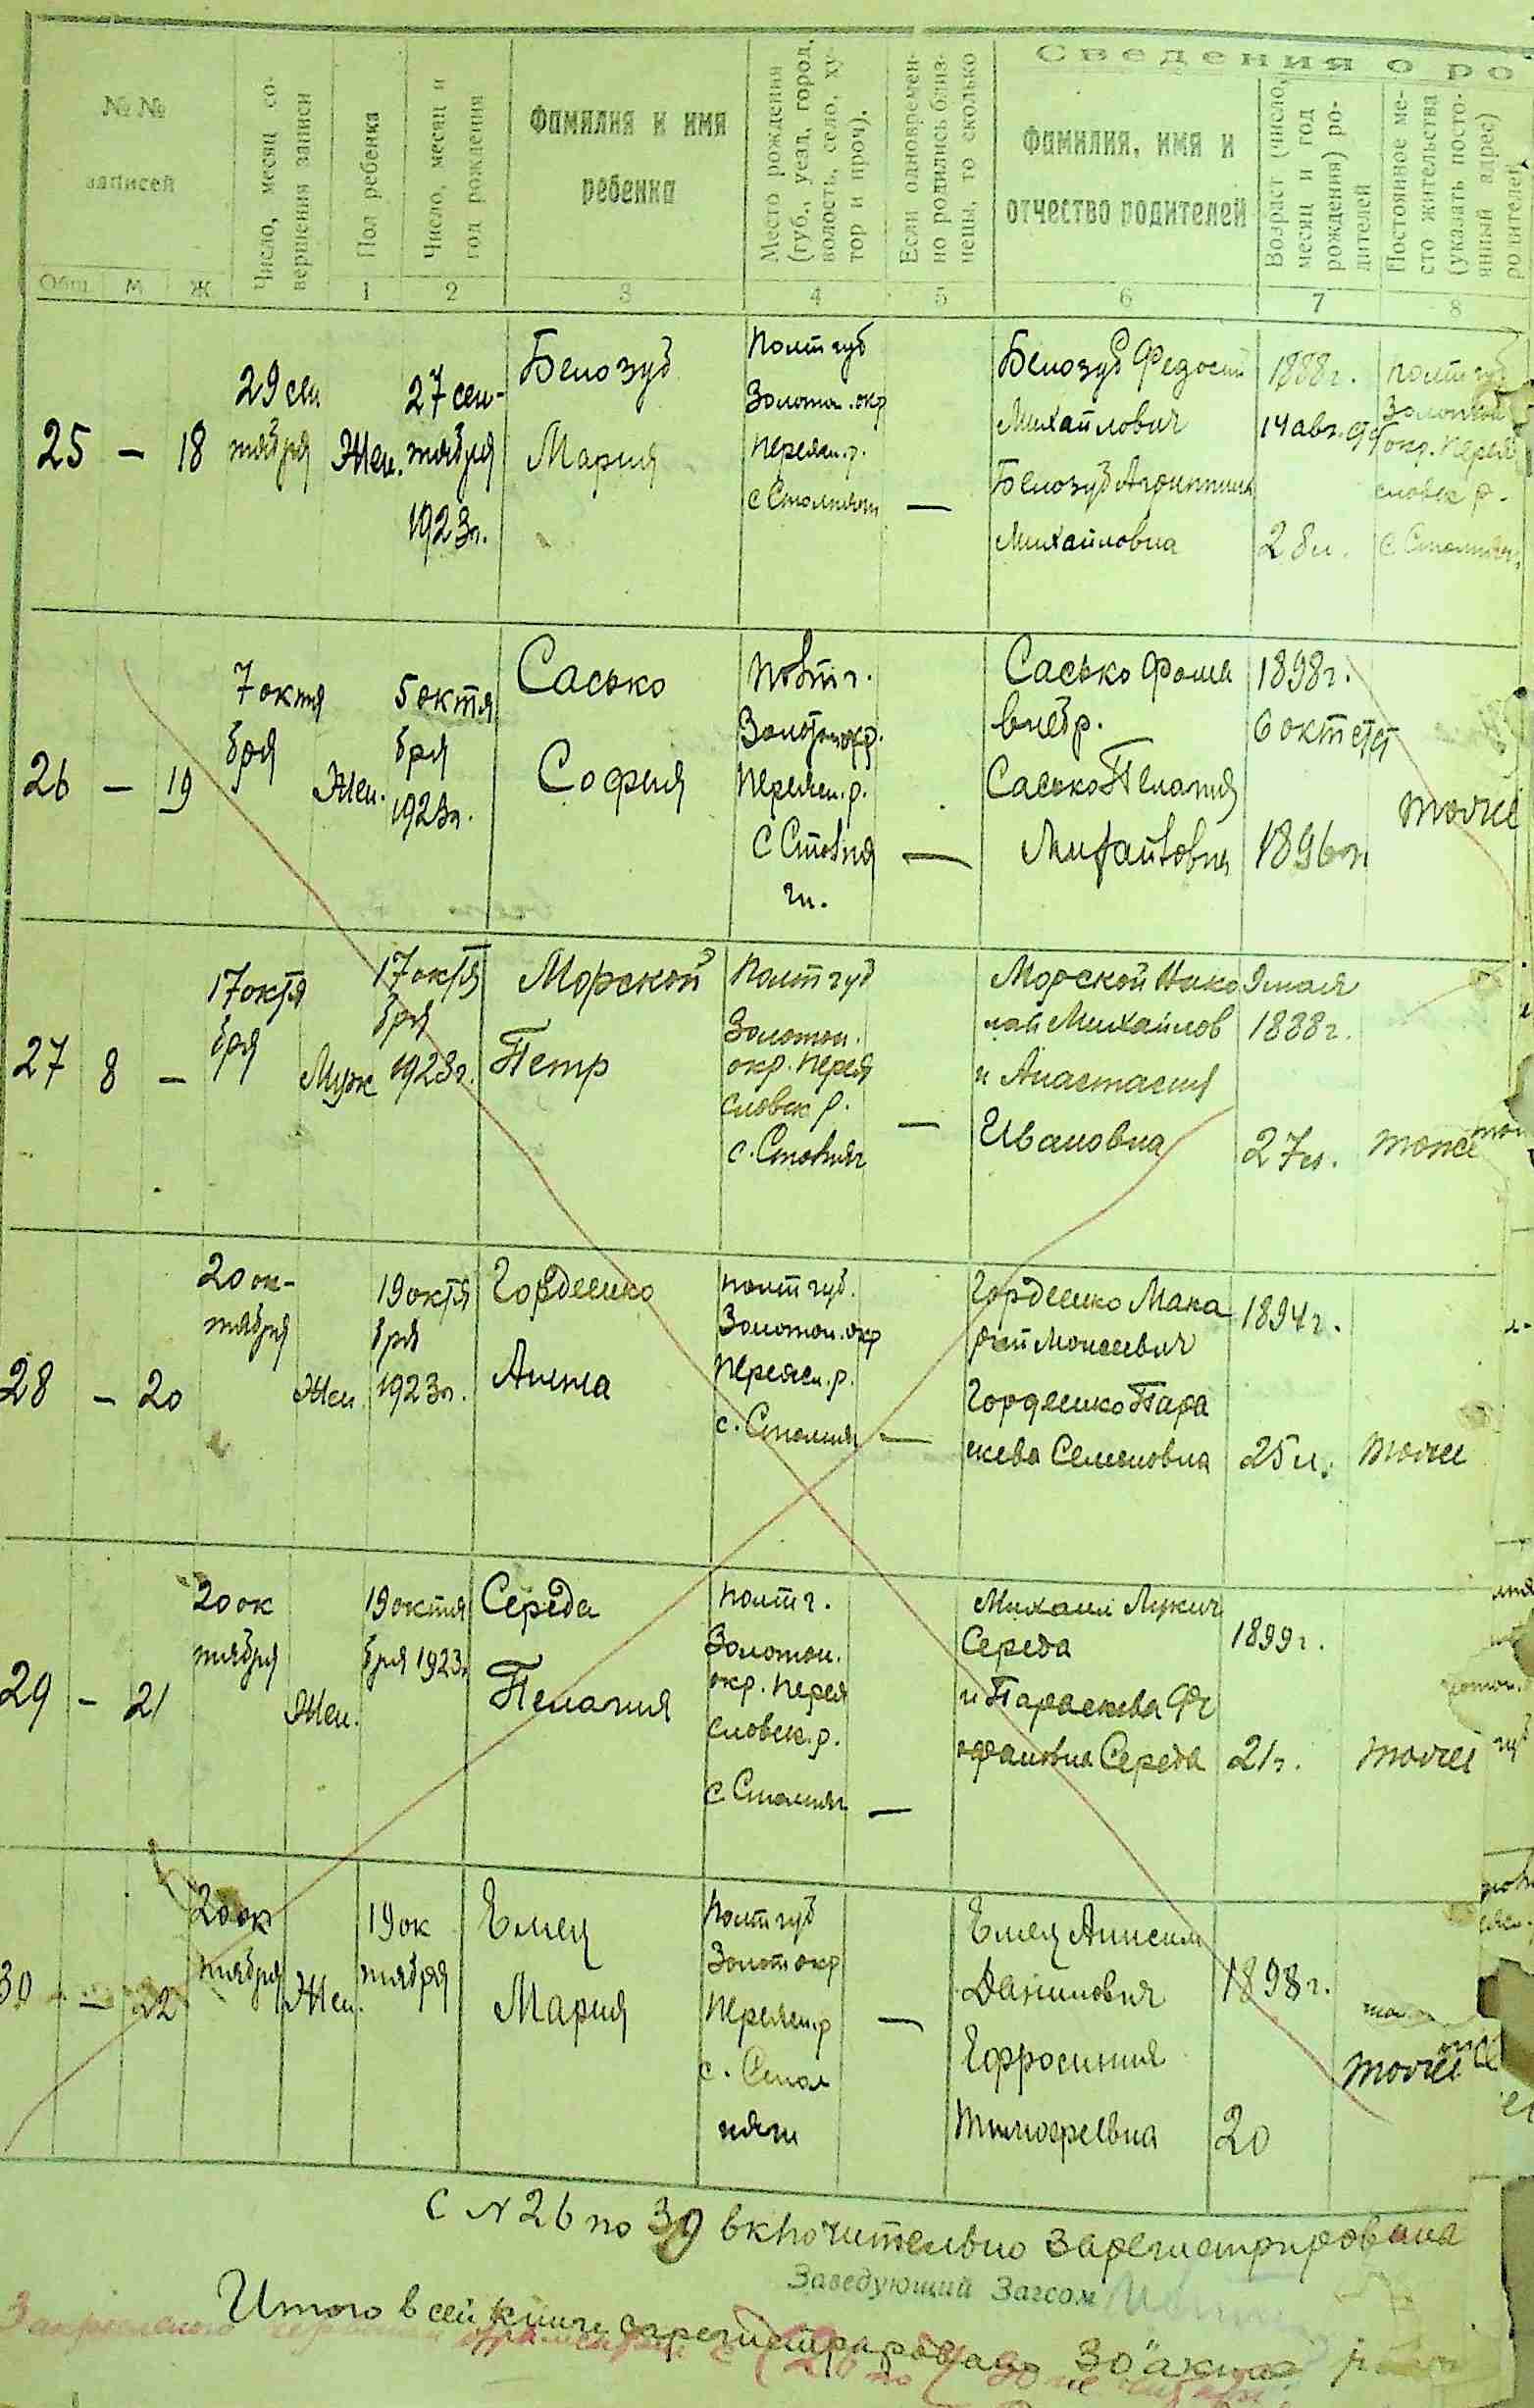 Сведения о ро
№№ записей
Число, месяц совершения записи
Пол ребенка
Число, месяц и год рождения
Фамилия и имя ребенка
Место рождения (губ., уезд, город, волость, село, хутор и проч).
Если одновременно родились близнецы, то сколько
Фамилия, имя и отчество родителей
Возраст (число, месяц и год рождения) родителей
Постоянное место жительства (указать постоянный адрес) родителей
Общ. М Ж 1 2 3 4 5 6 7 8
25 – 18
29 сен
тября
Жен.
27 сен-
тября
1923г.
Белозуб
Мария
Полт губ
Золотон. окр
Переясл. р.
с Столпяги
—
Белозуб Федосий
Михайлович
Белозуб Агриппина
Михайловна
1888г.
14 авг.
28 л.
Полт губ
Золотон
окр. Перея
словск р.
с Столпяги
26 – 19
7 октя
бря
Жен.
5 октя
бря
1923г.
Сасько
София
Полт г.
Золотон окр.
Переясл. р.
с Столпя
ги.
—
Сасько Фома
Сасько Пелагия
Михайловна
1898г.
6 окт
1896г
тоже
27 8 –
17 октя
бря
Муж
17 октя
бря
1923г.
Морской
Петр
Полт губ
Золотон.
окр. Перея
словск р.
с. Столпяг
—
Морской Нико
лай Михайлов
и Анастасия
Ивановна
9 мая
1888г.
27 л.
тоже
28 – 20
20 ок-
тября
Жен
19 октя
бря
1923г.
Гордиенко
Анна
Полт губ.
Золотон. окр
Переясл. р.
с. Столпяг
—
Гордиенко Мака
рий Моисеевич
Гордиенко Пара
скева Семеновна
1894г.
25 л.
тоже
29 – 21
20 ок
тября
Жен.
19 октя
бря 1923г
Середа
Пелагия
Полт г.
Золотон.
окр. Перея
словск. р.
с Столпяг
—
Михаил Лукич
Середа
и Параскева
Середа
1899г.
21 г.
тоже
30 – 22
20 ок
тября
Жен.
19 ок
тября
Емец
Мария
Полт губ
Золот окр
Переясл. р
с. Стол
пяги
—
Емец Анисим
Данилович
Ефросиния
Тимофеевна
1898г.
20
тоже
С № 26 по 30 включительно зарегистрирована
Заведующий Загсом
Итого в сей книге зарегистрировано 30 актов